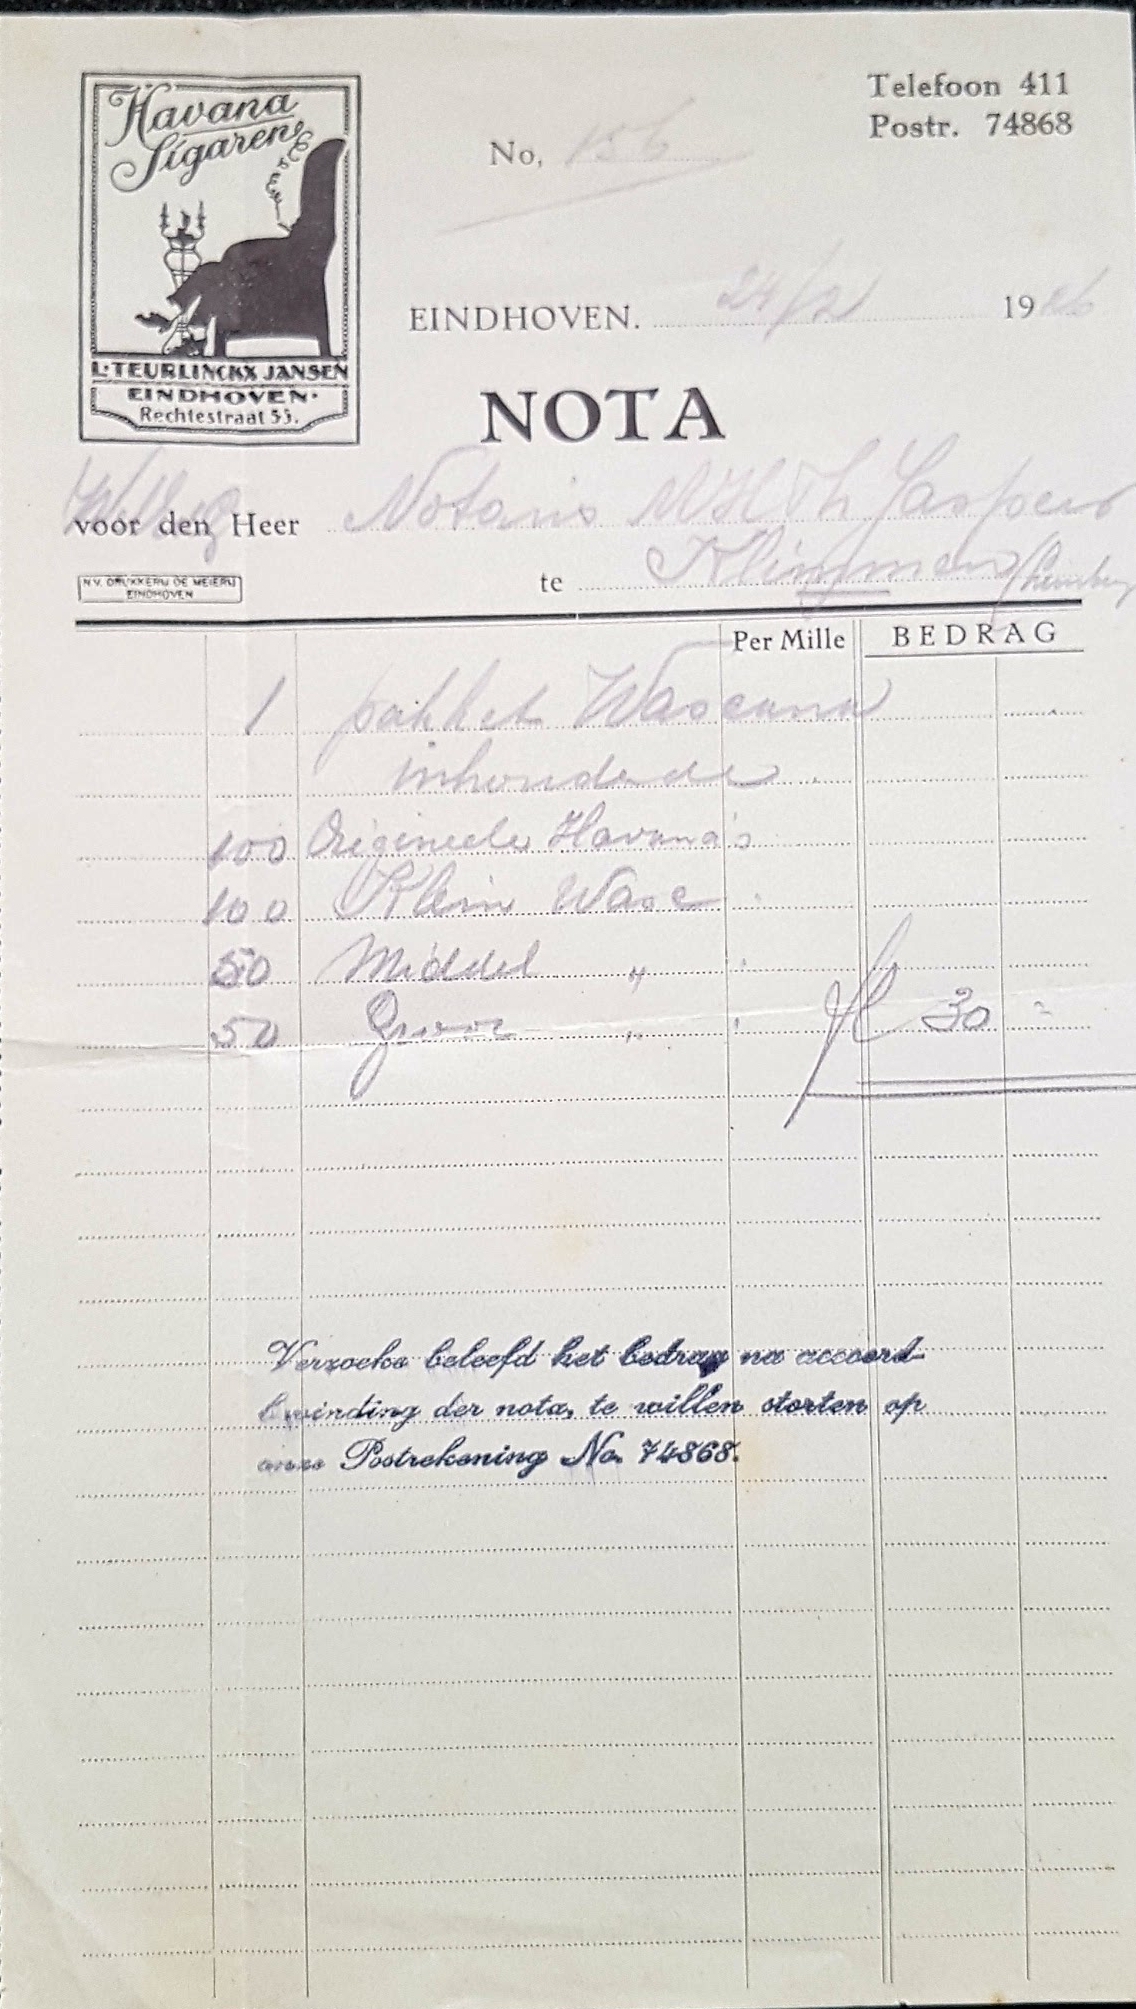 Havana
Sigaren
L. TEURLINCKX JANSEN
EINDHOVEN.
Rechtestraat 53.
Telefoon 411
Postr. 74868
No, 156
EINDHOVEN. 24/2 19
NOTA
voor den Heer Notaris Th Jaspers
te Klimmen
N.V. DRUKKERIJ DE MEIERIJ
EINDHOVEN
Per Mille BEDRAG
1 pakket Wascana
inhoudende
100 Origineele Havana's
100 Klein Wasc
50 Middel "
50 Groot " fl 30
Verzoeke beleefd het bedrag na accoord-
bevinding der nota, te willen storten op
onze Postrekening No. 74868.